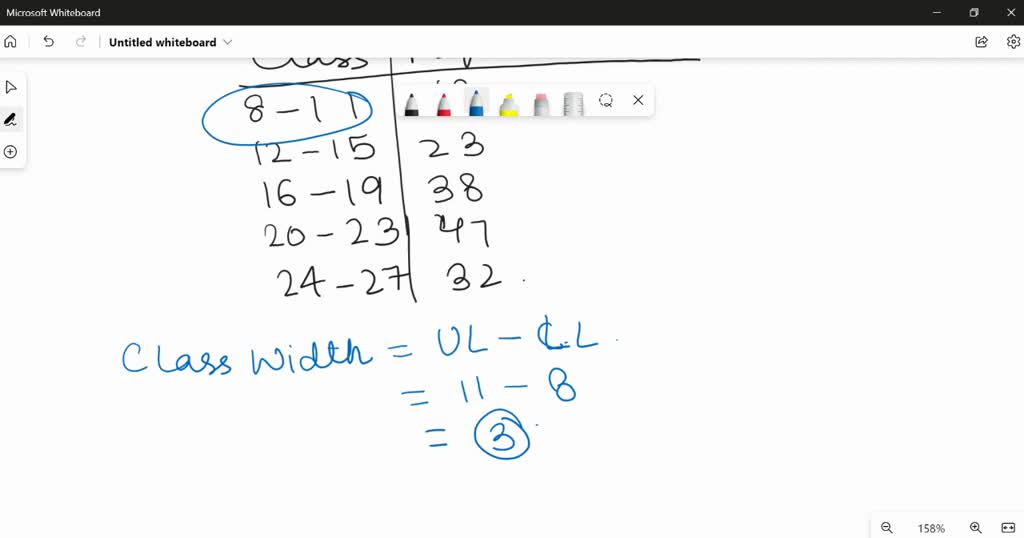 Microsoft Whiteboard
Untitled whiteboard
Class
8 - 11
12 - 15 23
16 - 19 38
20 - 23 47
24 - 27 32 .
Class Width = UL - L.L .
= 11 - 8
= 3 .
158%